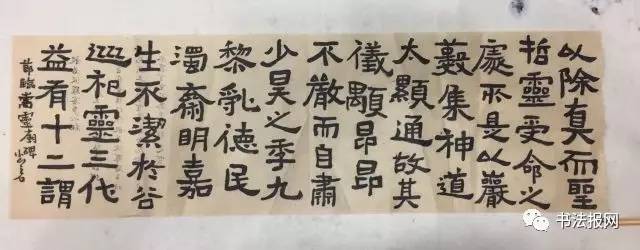 以除真而聖
哲靈受命之
處不是以巖
藪集神道
太顯通故其
儀顒昂昂
不嚴而自肅
少昊之季九
黎乱德民
濁齋明嘉
生不潔於谷
巡祀靈三代
益有十二謂
節臨嵩靈廟碑
书法报网